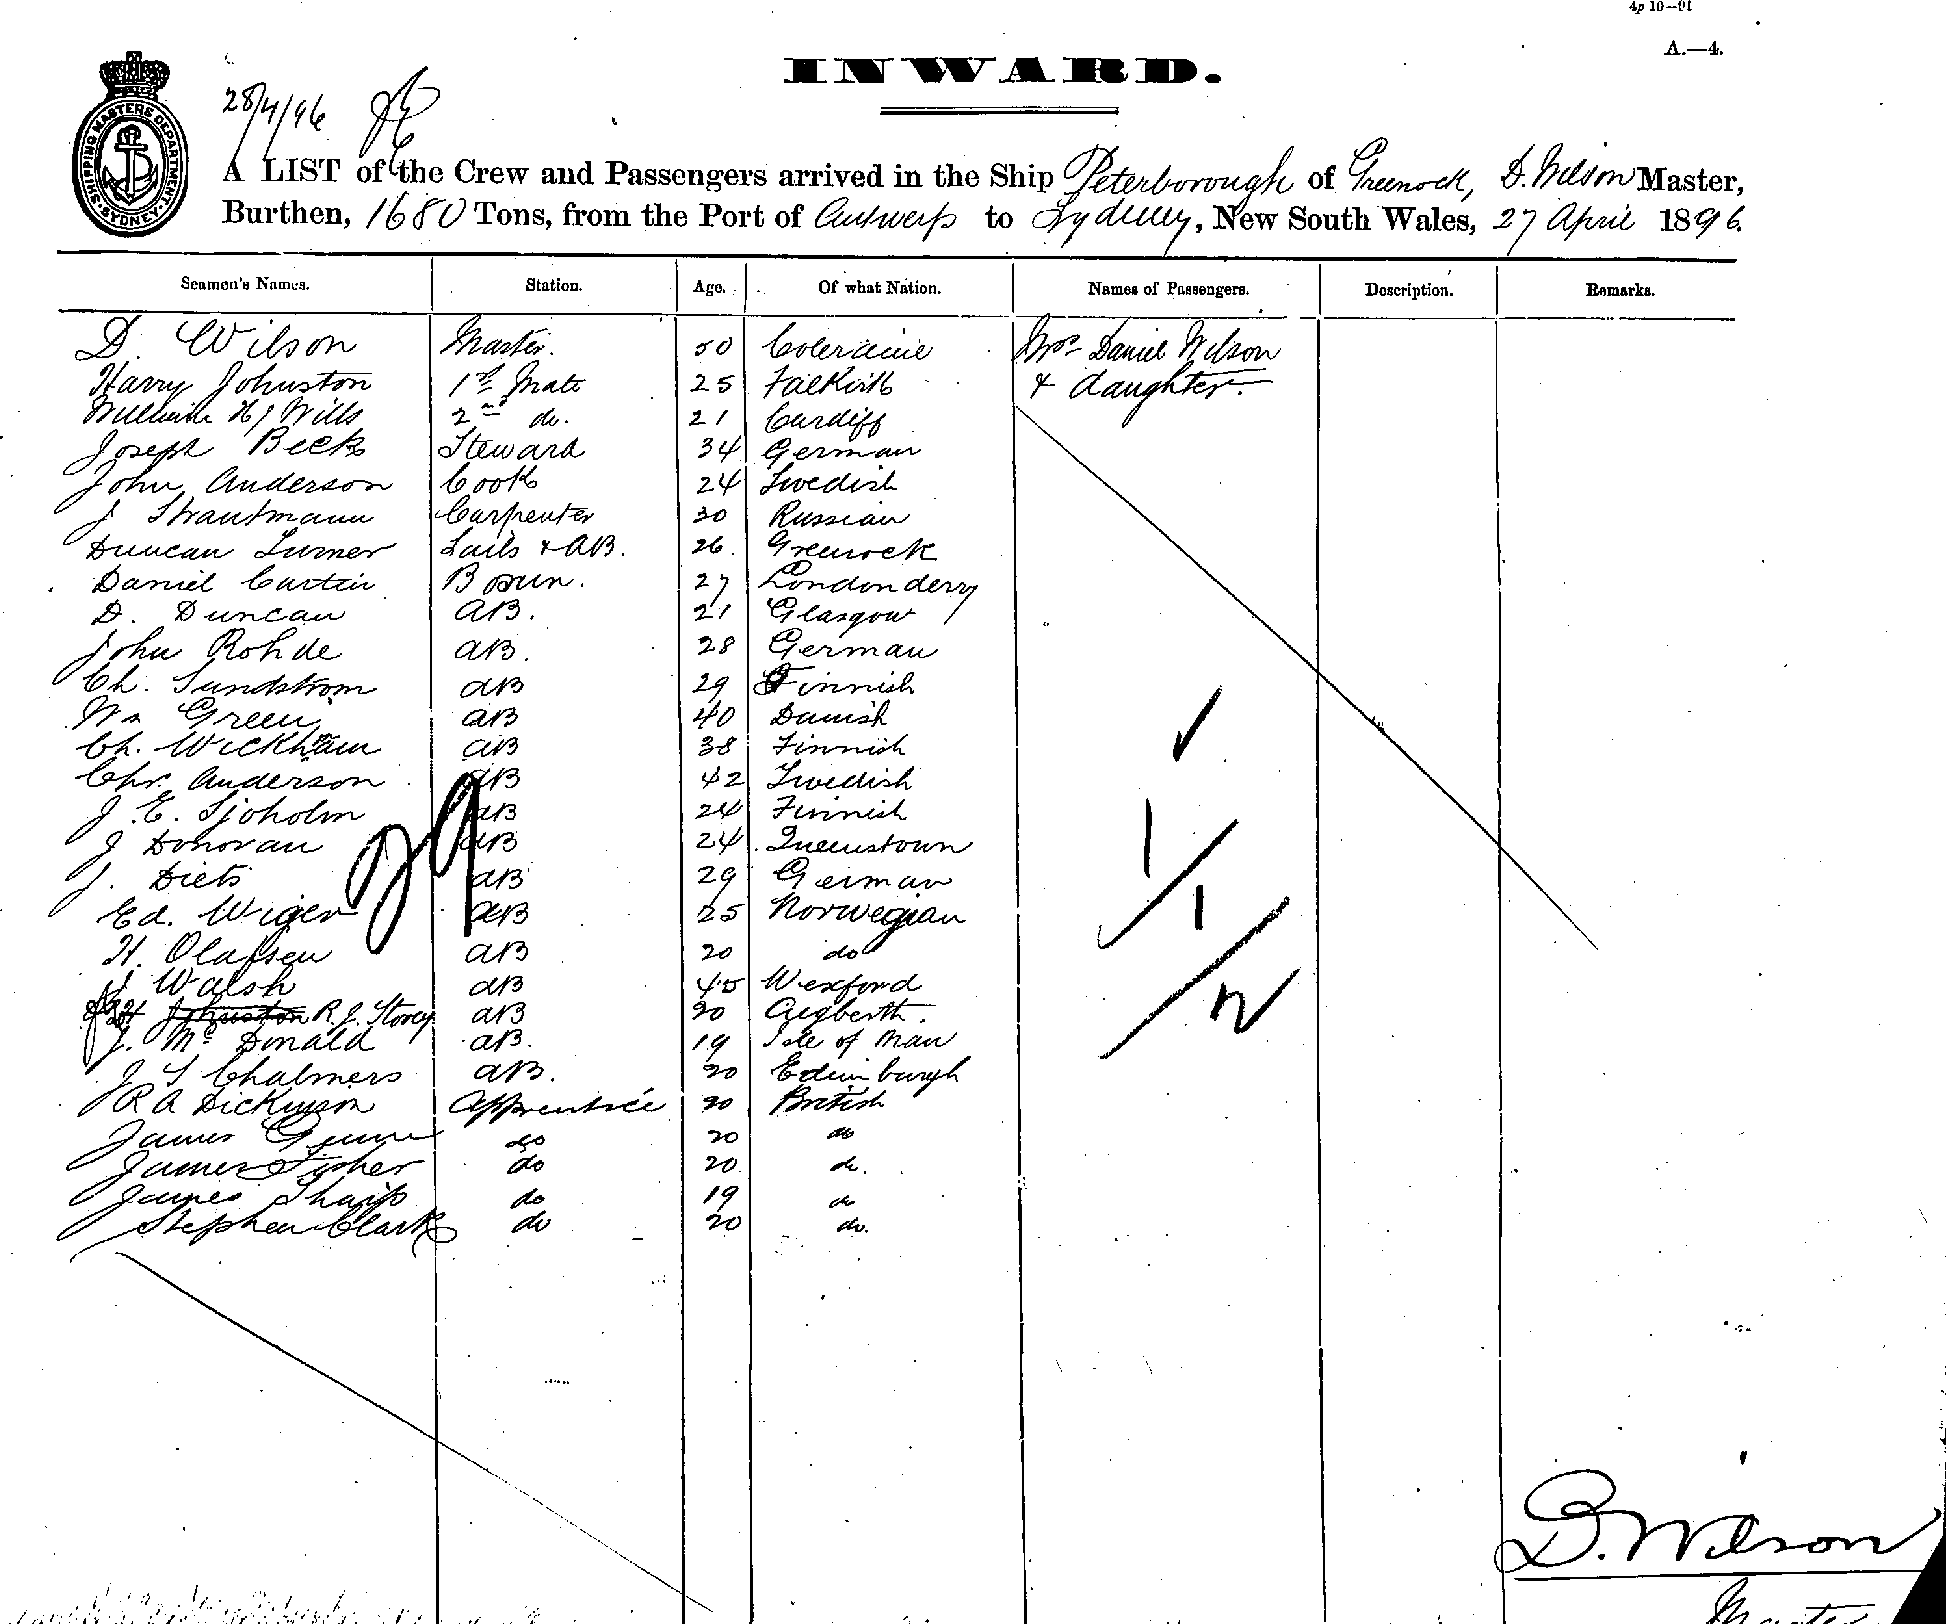 4p 10—91
A.—4.
INWARD.
28/4/96
SHIPPING MASTERS DEPARTMENT. SYDNEY.
A LIST of the Crew and Passengers arrived in the Ship Peterborough of Greenock, D. Wilson Master,
Burthen, 1680 Tons, from the Port of Antwerp to Sydney, New South Wales, 27 April 1896.
Seamen's Names. Station. Age. Of what Nation. Names of Passengers. Description. Remarks.
D. Wilson Master. 50 Coleraine Mrs Daniel Wilson
Harry Johnston 1st Mate 25 Falkirk & daughter.
William H J Wills 2nd do. 21 Cardiff
Joseph Beck Steward 34 German
John Anderson Cook 24 Swedish
J Strautmann Carpenter 30 Russian
Duncan Turner Sails & AB. 26. Greenock
Daniel Curtin Bosun. 27 Londonderry
D. Duncan AB. 21 Glasgow
John Rohde AB. 28 German
Ch. Sundstrom AB 29 Finnish
Wm Green AB 40 Danish
Ch. Wickham AB 38 Finnish
Chr. Anderson AB 42 Swedish
J. E. Sjoholm AB 24 Finnish
J Donovan AB 24 Queenstown
J. Diets AB 29 German
Ed. Wiger AB 25 Norwegian
H. Olafsen AB 20 do
J. Walsh AB 45 Wexford
Johnston R. J. Storey AB 20 Aigberth.
J. McDonald AB. 19 Isle of Man
J S Chalmers AB. 20 Edinburgh
R A Dickinson Apprentice 20 British
James Gunn do 20 do
James Fysher do 20 do.
James Sharp do 19 do
Stephen Clark do 20 do.
29
1
1
2
D. Wilson
Master